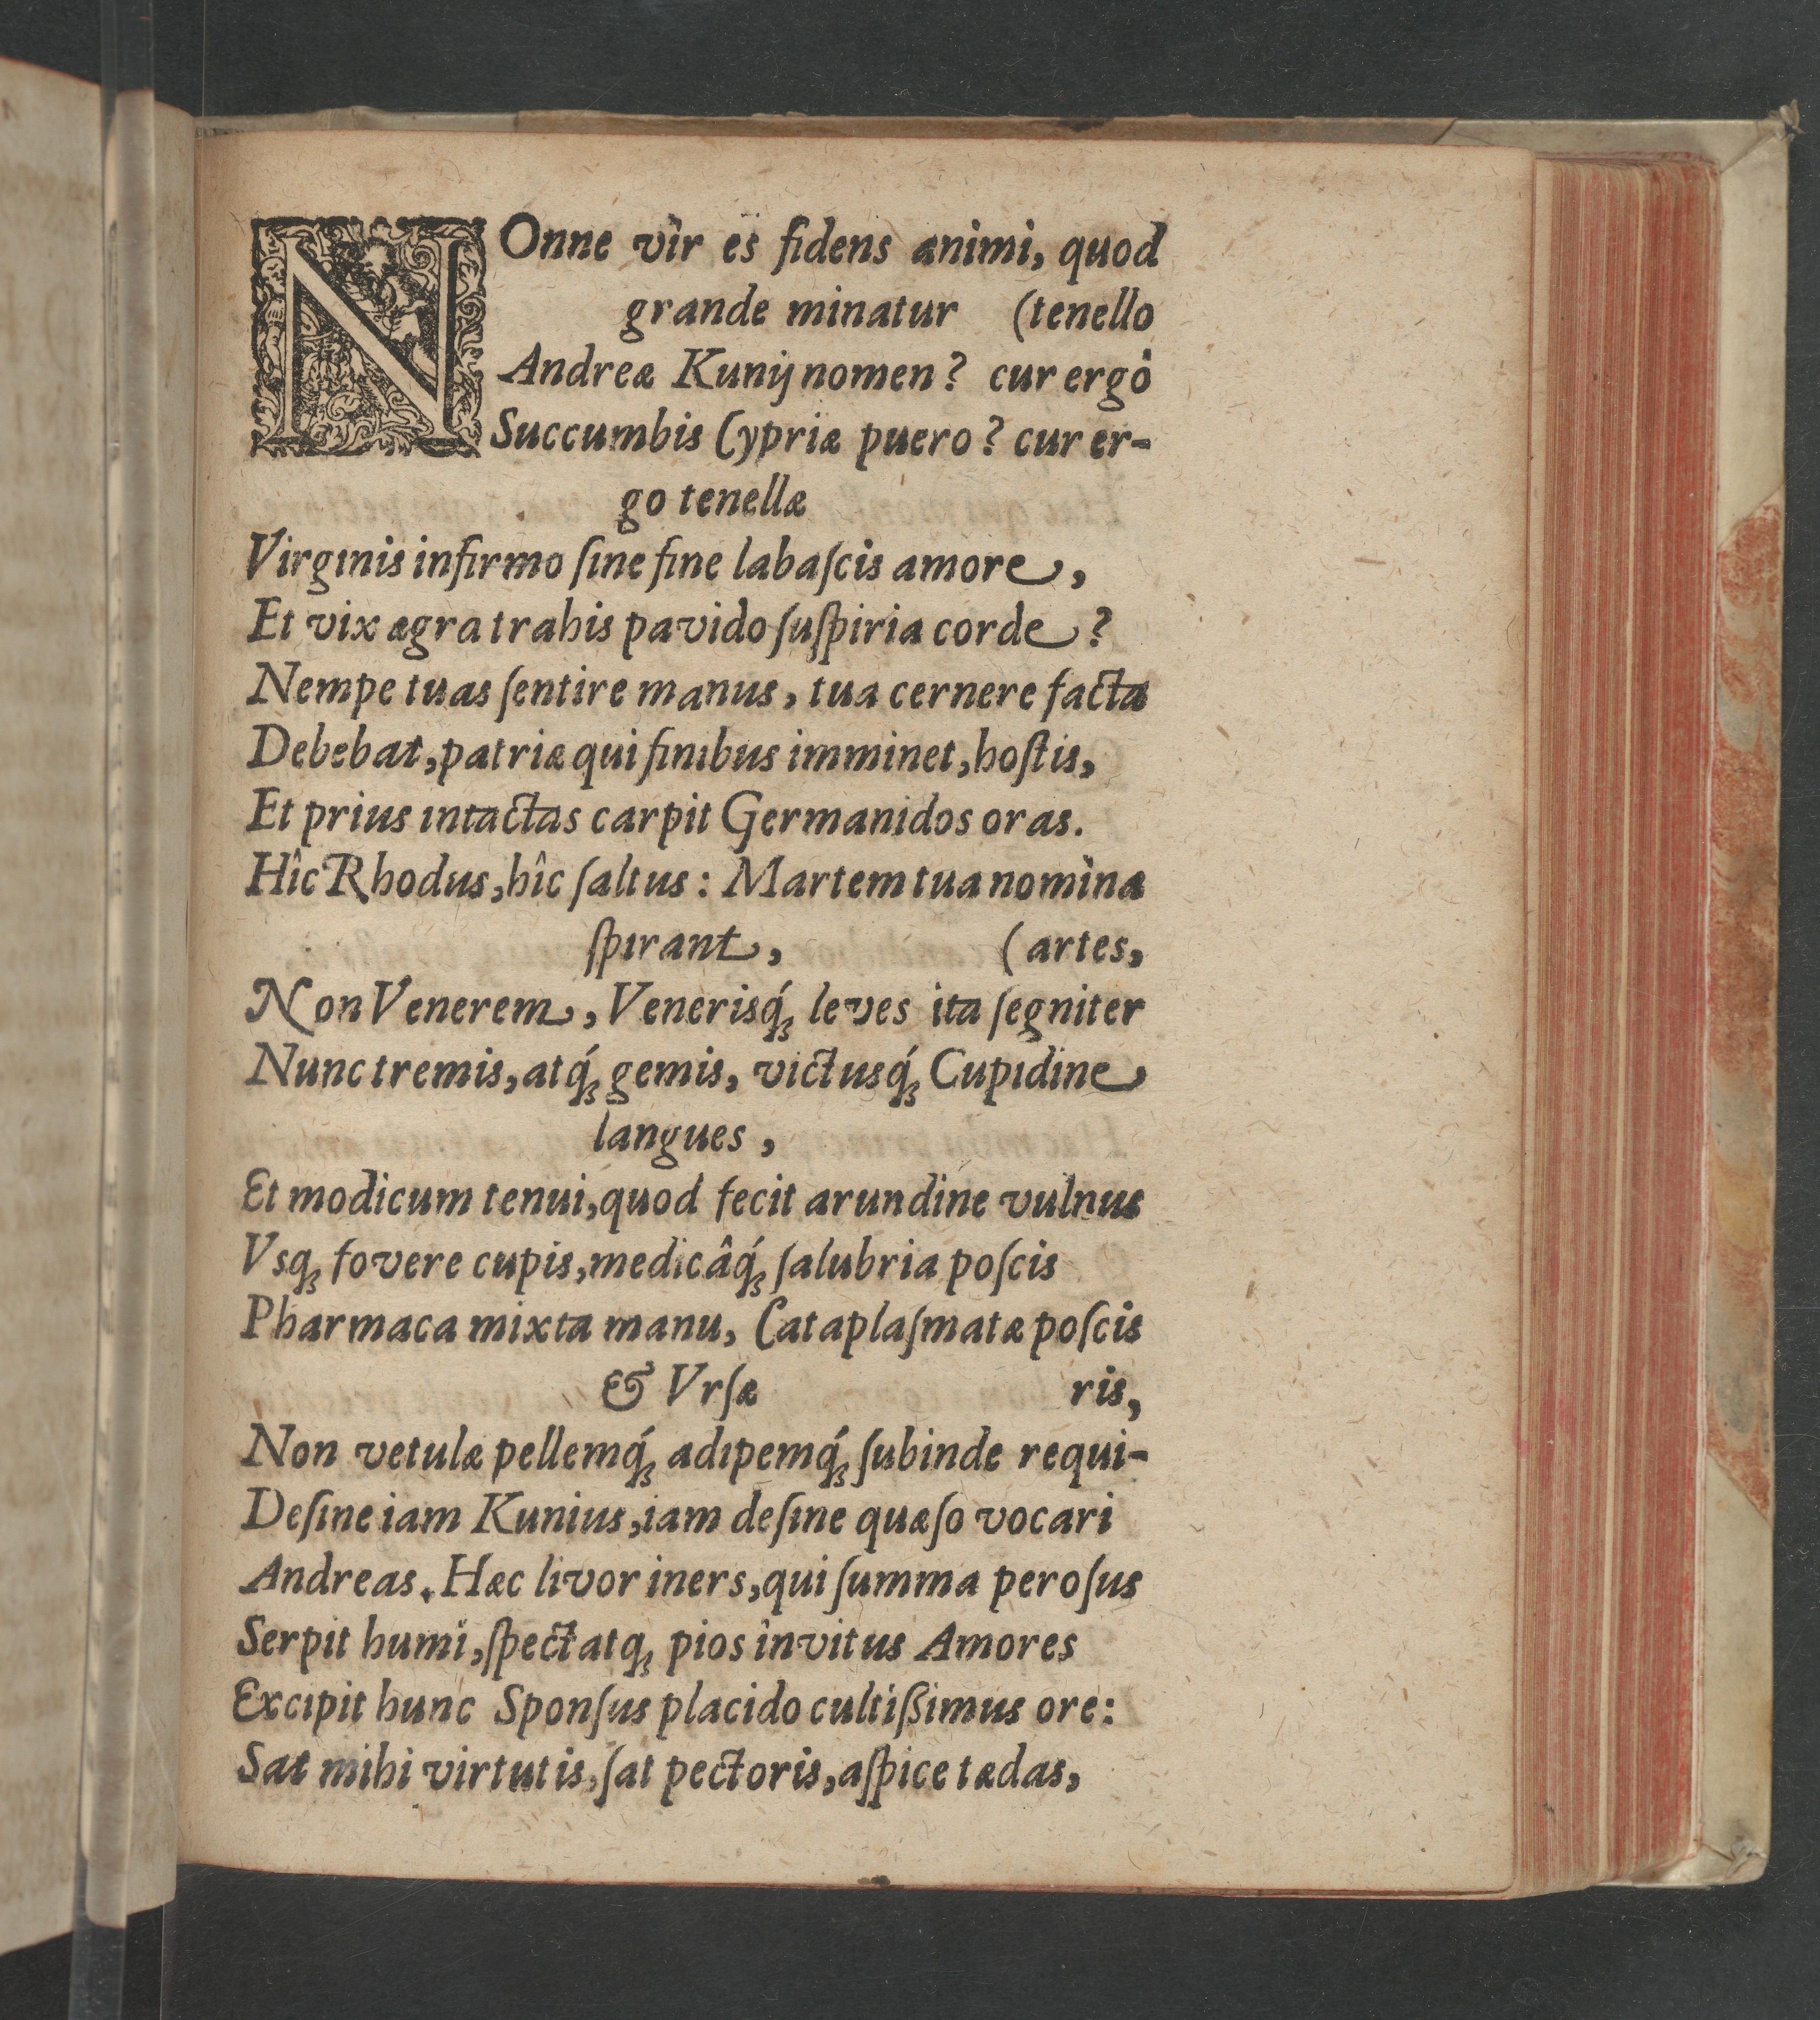 NOnne vir es fidens animi, quod
grande minatur (tenello
Andreæ Kunij nomen? cur ergò
Succumbis Cypriæ puero? cur er-
go tenellæ
Virginis infirmo ſine fine labaſcis amore,
Et vix ægra trahis pavido ſuſpiria corde?
Nempe tuas ſentire manus, tua cernere facta
Debebat, patriæ qui finibus imminet, hoſtis,
Et prius intactas carpit Germanidos oras.
Hîc Rhodus, hîc ſaltus: Martem tua nomina
ſpirant, (artes,
Non Venerem, Venerisq́; leves ita ſegniter
Nunc tremis, atq́; gemis, victusq́; Cupidine
langues,
Et modicum tenui, quod fecit arundine vulnus
Vsq; fovere cupis, medicâq́; ſalubria poſcis
Pharmaca mixta manu, Cataplaſmatæ poſcis
& Vrſæ ris,
Non vetulæ pellemq́; adipemq́; ſubinde requi-
Deſine iam Kunius, iam deſine quæſo vocari
Andreas. Hæc livor iners, qui ſumma peroſus
Serpit humi, ſpectatq; pios invitus Amores
Excipit hunc Sponſus placido cultißimus ore:
Sat mihi virtutis, ſat pectoris, aſpice tædas,